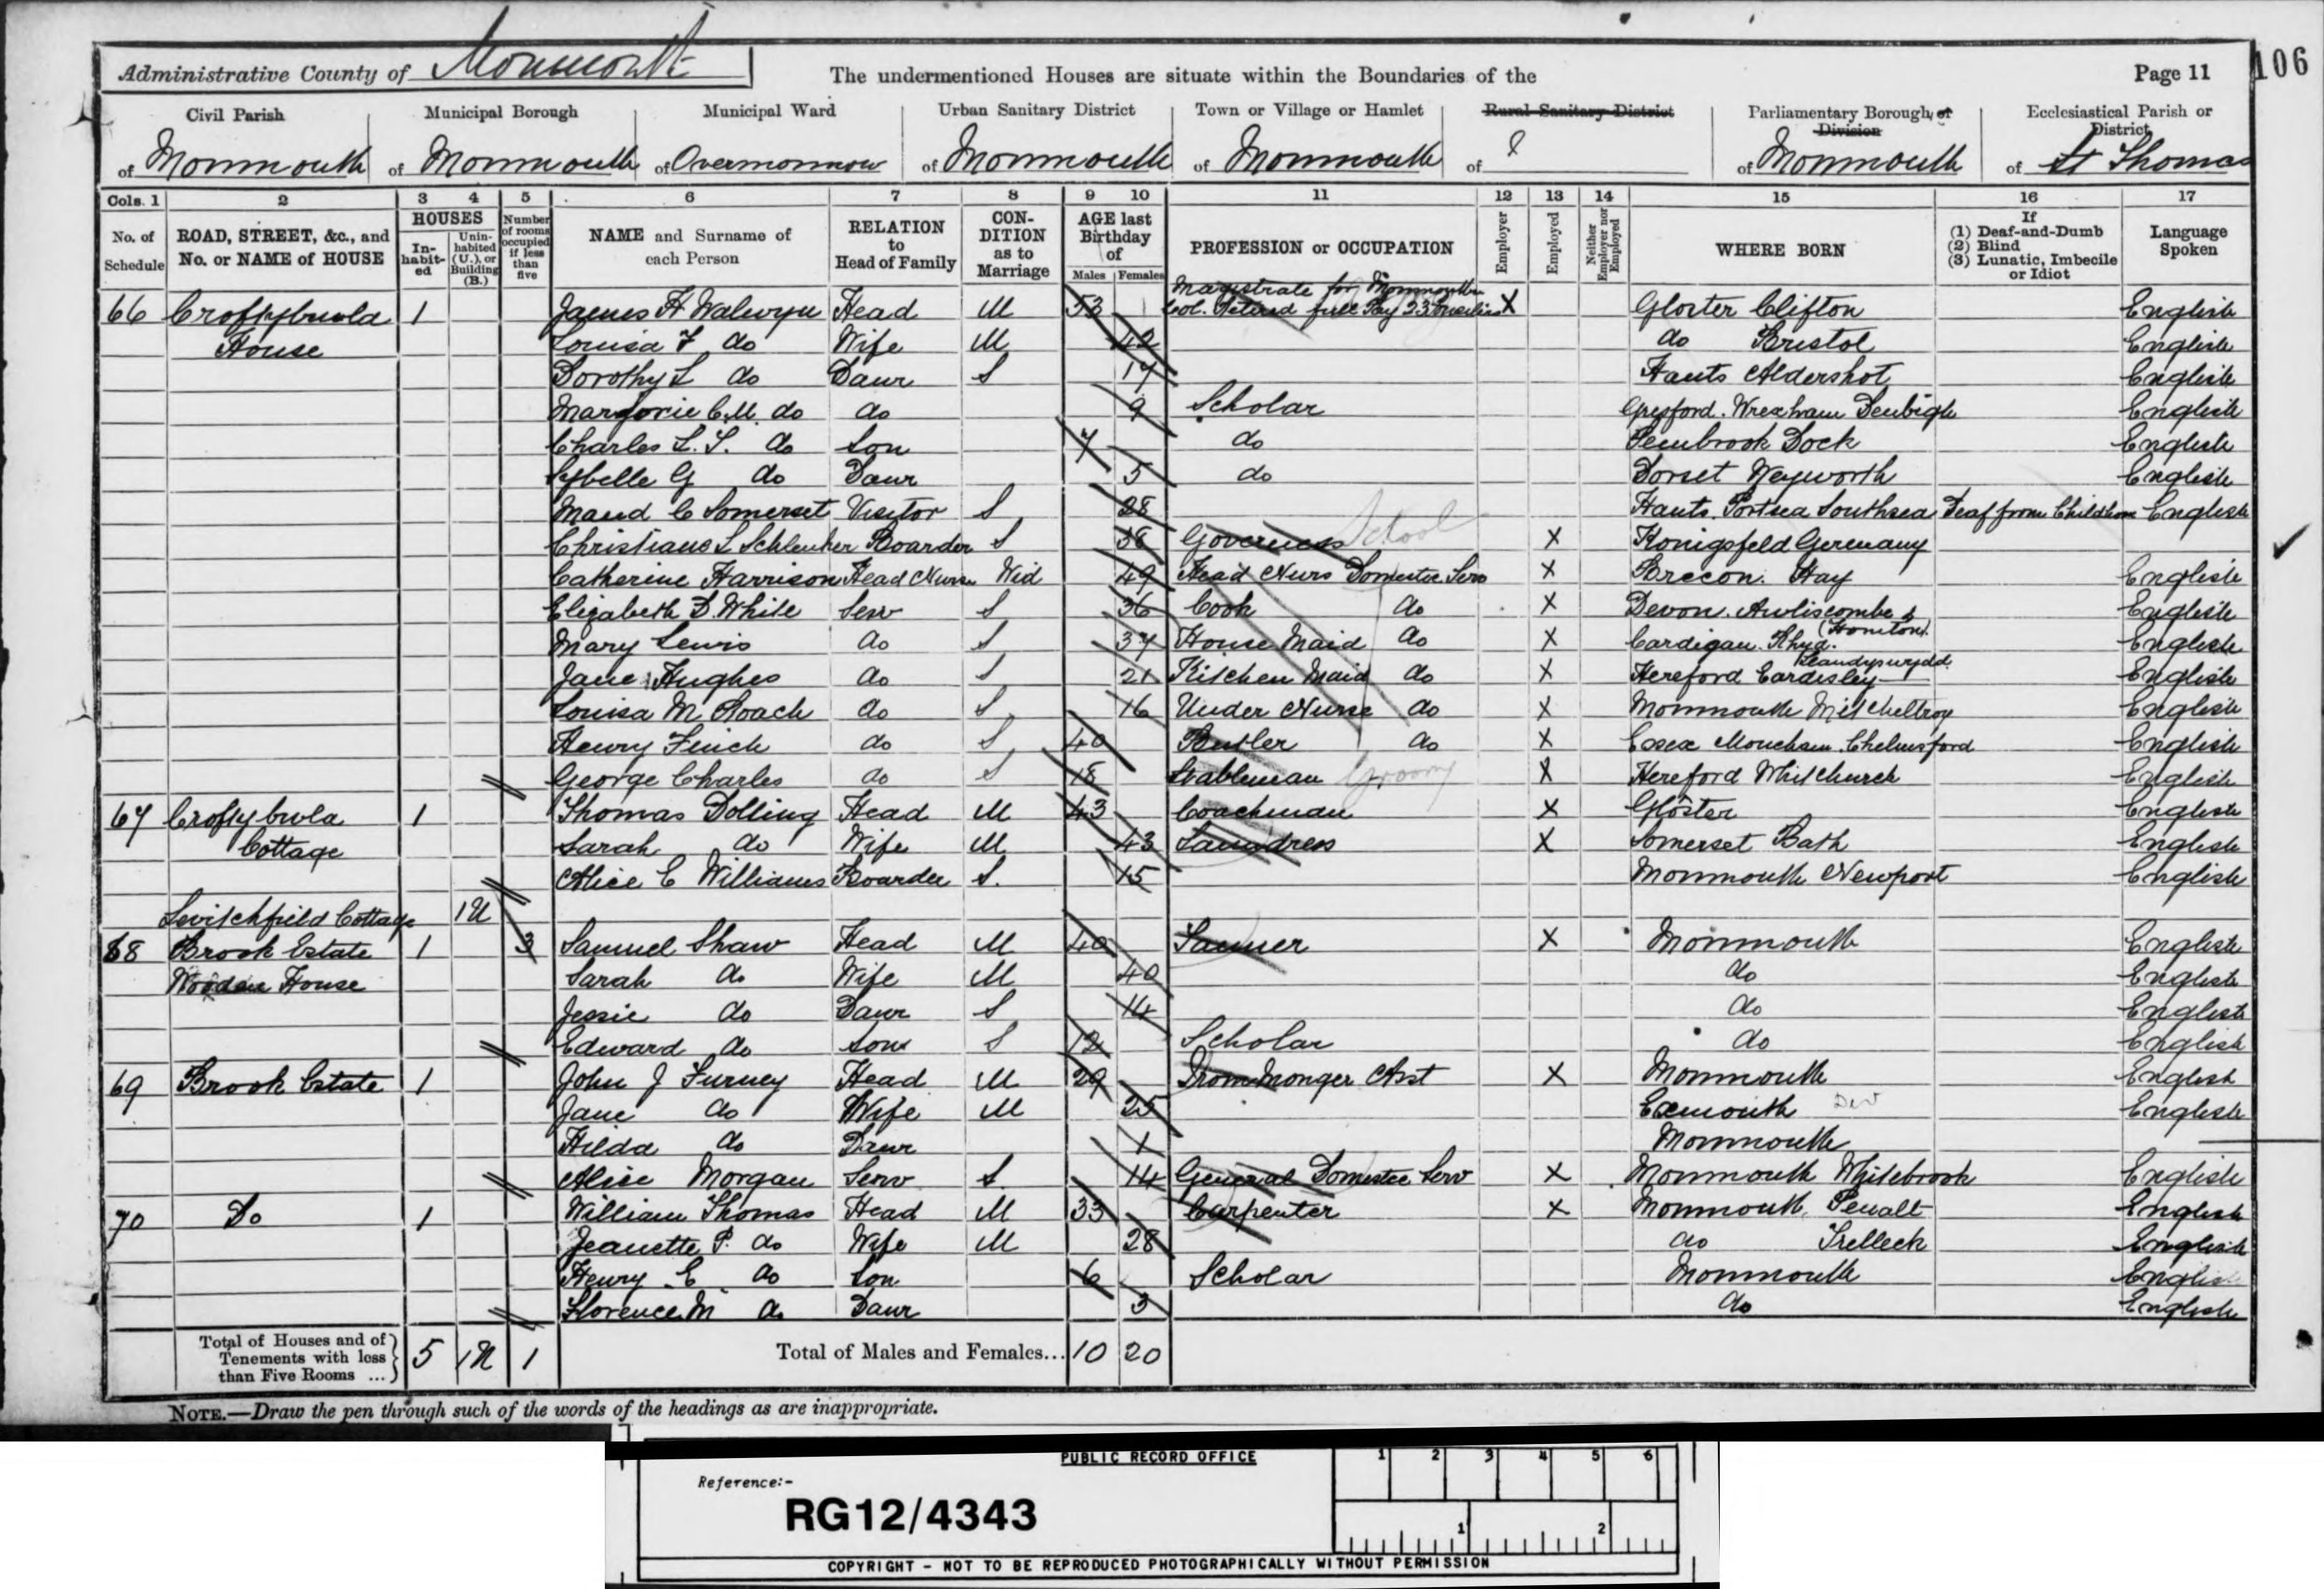 Administrative County of Monmouth The undermentioned Houses are situate within the Boundaries of the Page 11 106
Civil Parish Municipal Borough Municipal Ward Urban Sanitary District Town or Village or Hamlet Rural Sanitary District Parliamentary Borough or Division Ecclesiastical Parish or District
of Monmouth of Monmouth of Overmonnow of Monmouth of Monmouth of of Monmouth of St Thomas
Cols. 1 2 3 4 5 6 7 8 9 10 11 12 13 14 15 16 17
No. of Schedule ROAD, STREET, &c., and No. or NAME of HOUSE HOUSES In-habit-ed Unin-habited (U.), or Building (B.) Number of rooms occupied if less than five NAME and Surname of each Person RELATION to Head of Family CON-DITION as to Marriage AGE last Birthday of Males Females PROFESSION or OCCUPATION Employer Employed Neither Employer nor Employed WHERE BORN If (1) Deaf-and-Dumb (2) Blind (3) Lunatic, Imbecile or Idiot Language Spoken
Magistrate for Monmouth
66 Croftybwla 1 James H Walwyn Head M 53 Col. Retired full Pay 23 Fusiliers X Gloster Clifton English
House Louisa F do Wife M 42 do Bristol English
Dorothy L do Daur S 17 Hants Aldershot English
Margorie C.M. do do 9 Scholar Gresford. Wrexham Denbigh English
Charles L. S. do Son 7 do Pembrook Dock English
Sybelle G do Daur 5 do Dorset Weyworth English
Maud C Somerset Visitor S 28 Hants. Portsea Southsea Deaf from Childhood English
Christiane L Schlenker Boarder S 38 Governess School X Konigsfeld Germany
Catherine Harrison Head Nurse Wid 49 Head Nurs Domestic Serv X Brecon. Hay English
Elizabeth D. White Serv S 36 Cook do X Devon. Awliscombe English
(Honiton).
Mary Lewis do S 37 House Maid do X Cardigan. Rhyd. English
Llandyswydd
Jane Hughes do S 21 Kitchen Maid do X Hereford Eardisley English
Louisa M Roach do S 16 Under Nurse do X Monmouth Mitcheltroy English
Henry Finch do S 40 Butler do X Essex Chelmsford English
George Charles do S 18 Stableman Groom X Hereford Whitchurch English
67 Croftybwla 1 Thomas Dolling Head M 43 Coachman X Gloster English
Cottage Sarah do Wife M 43 Laundress X Somerset Bath English
Alice E Williams Boarder S. 15 Monmouth Newport English
Levitchfield Cottage 1U
68 Brook Estate 1 3 Samuel Shaw Head M 40 X Monmouth English
Wooden House Sarah do Wife M 40 do English
Jessie do Daur S 14 do English
Edward do Son S 12 Scholar do English
69 Brook Estate 1 John J Furney Head M 29 Iron Monger Asst X Monmouth English
Jane do Wife M 25 Exmouth Dev English
Hilda do Daur 1 Monmouth
Alice Morgan Serv S. 14 General Domestic Serv X Monmouth Whitebrook English
70 Do 1 William Thomas Head M 33 Carpenter X Monmouth, Penalt English
Jeanette P. do Wife M 28 do Trelleck English
Henry E do Son 6 Scholar Monmouth English
Florence M do Daur 3 do English
Total of Houses and of Tenements with less than Five Rooms ... 5 1U 1 Total of Males and Females... 10 20
NOTE.—Draw the pen through such of the words of the headings as are inappropriate.
PUBLIC RECORD OFFICE 1 2 3 4 5 6
Reference:-
RG12/4343
1 2
COPYRIGHT - NOT TO BE REPRODUCED PHOTOGRAPHICALLY WITHOUT PERMISSION